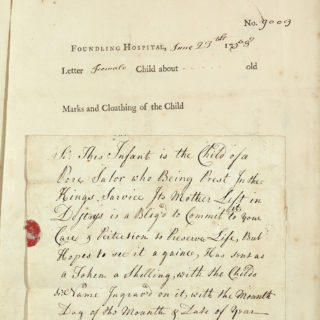 No. 9003
Foundling Hospital, June 23 1758
Letter Female Child about old
Marks and Cloathing of the Child
Sr. This Infant is the Child of a
Pore Salor who Being Prest In the
Kings Sarvice Its Mother Left in
Distrys is a Blig'd to Commit to your
Care & Pertection to Preserve Life, But
Hopes to see it againe, Has sent as
a Token a Shelling, with the Childs
Name Ingrav'd on it, with the Mounth
Day of the Mounth & Date of Year